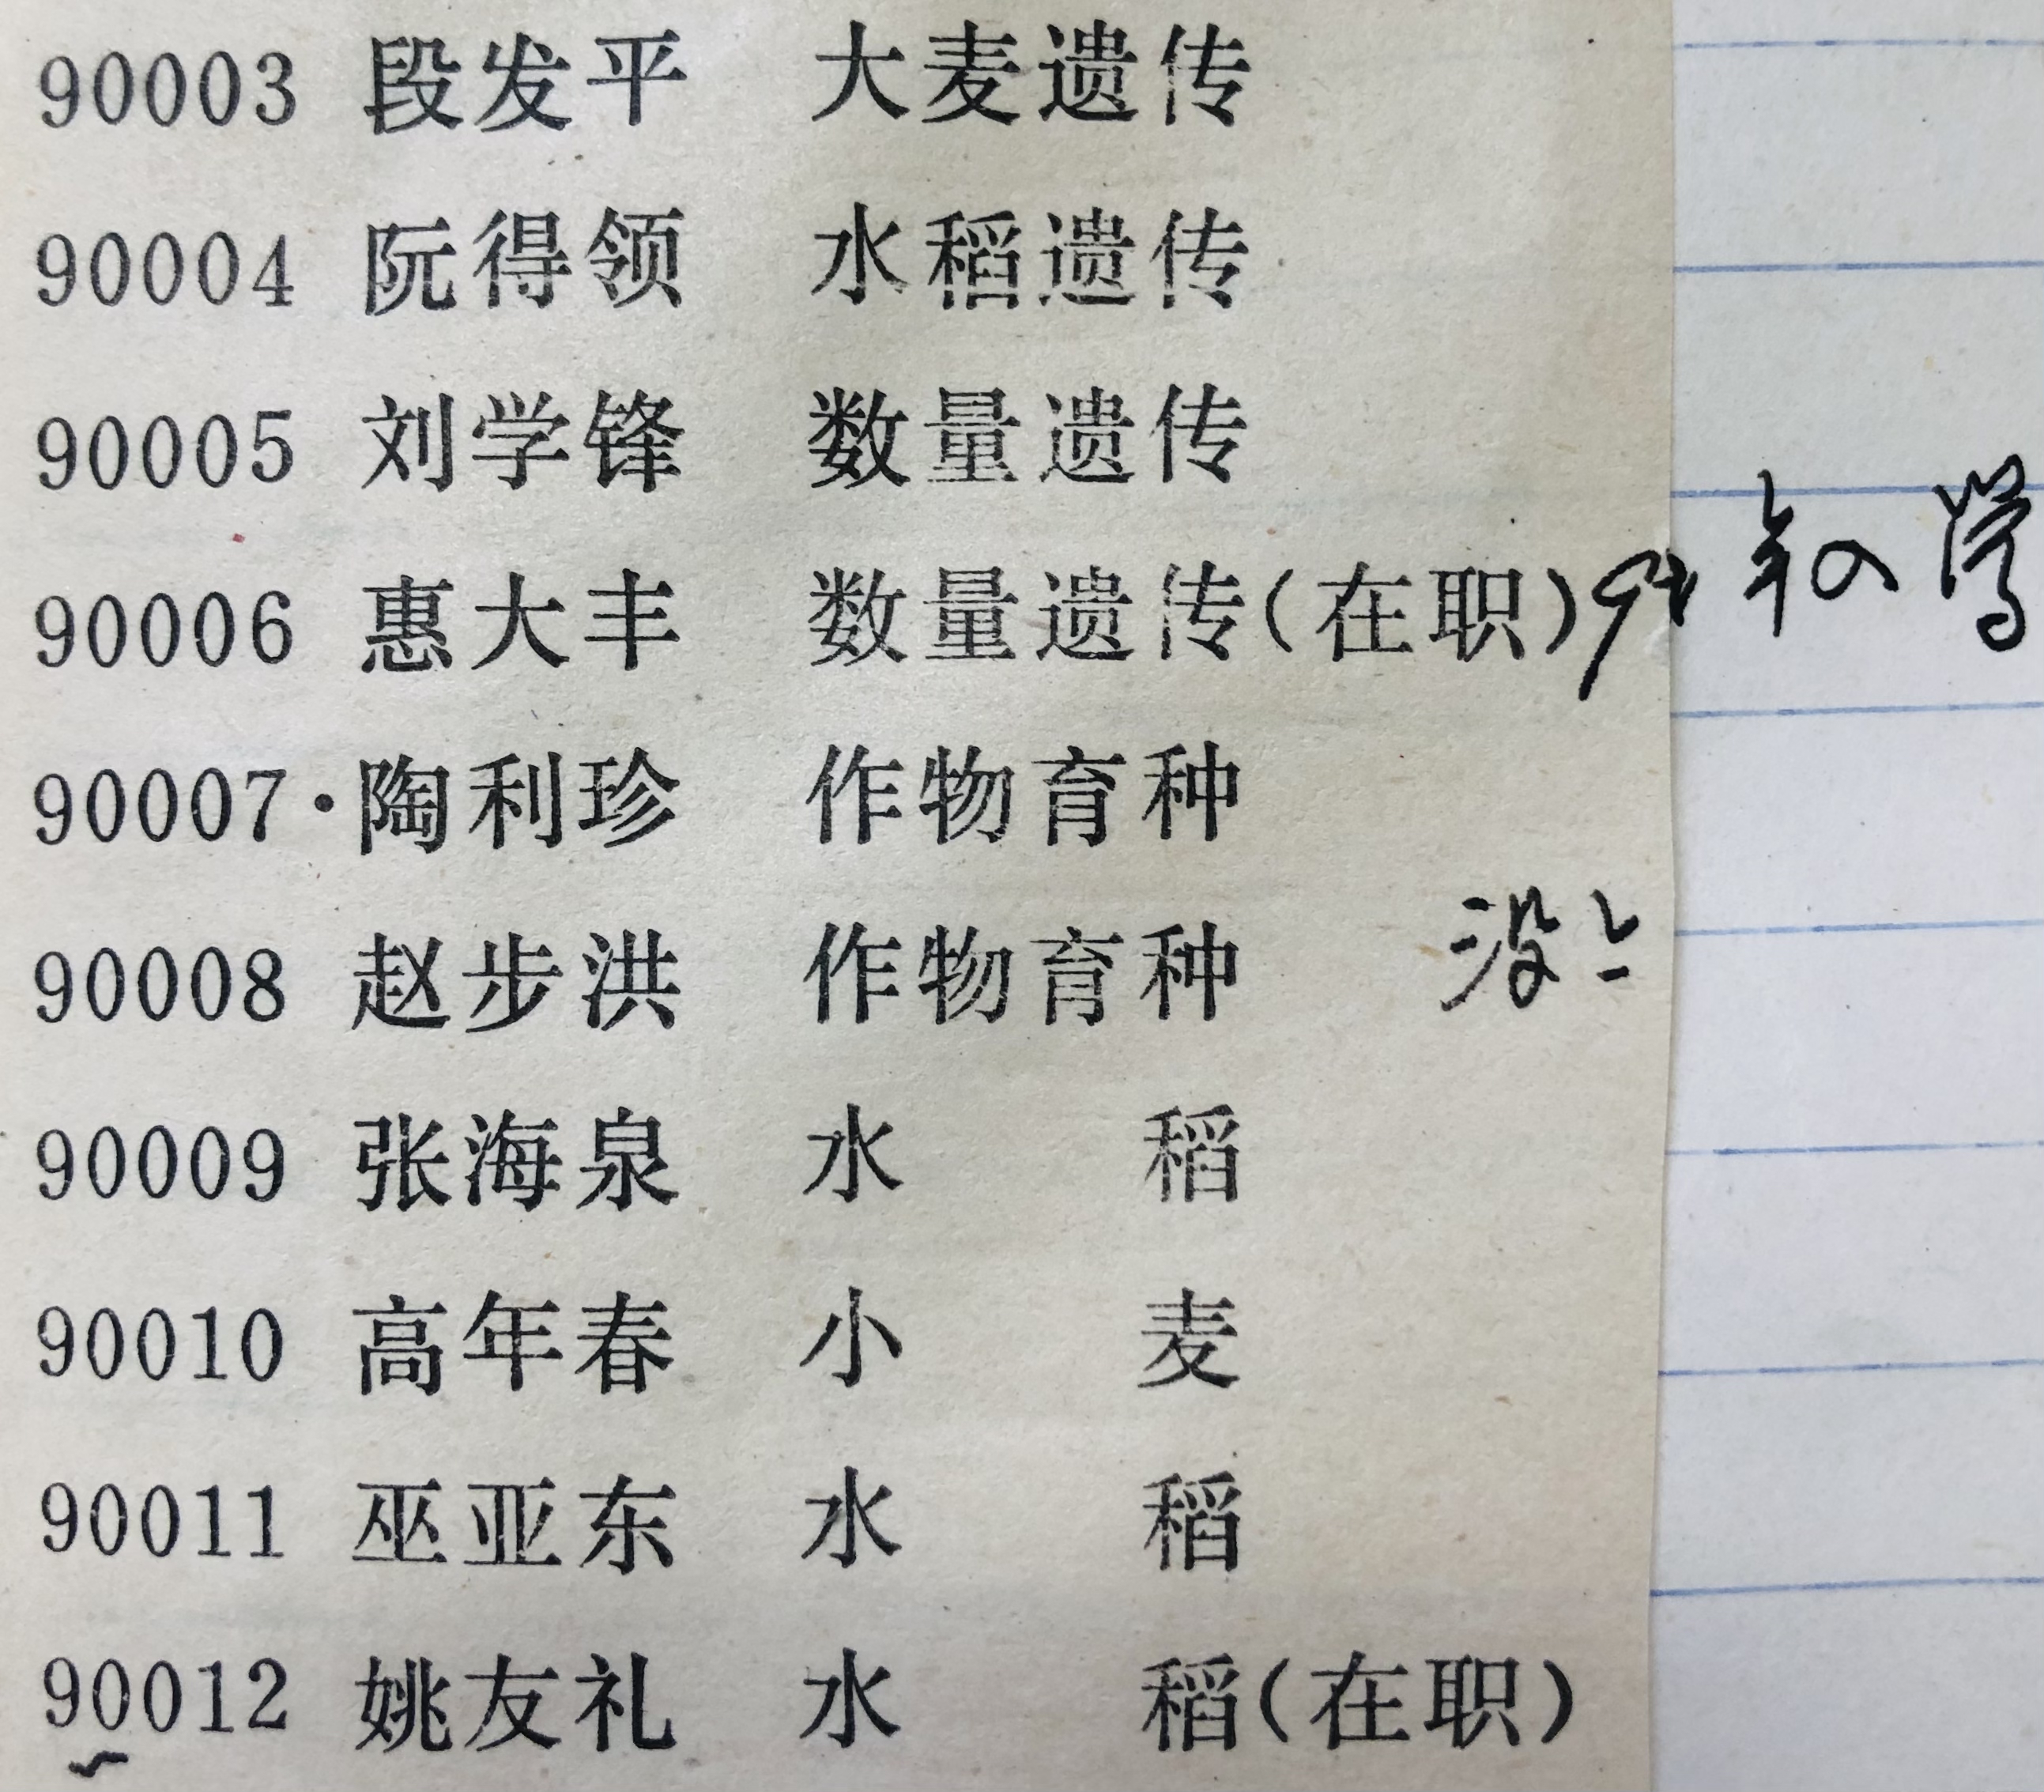 90003 段发平 大麦遗传
90004 阮得领 水稻遗传
90005 刘学锋 数量遗传
90006 惠大丰 数量遗传(在职) 年入学
90007·陶利珍 作物育种
90008 赵步洪 作物育种 没上
90009 张海泉 水 稻
90010 高年春 小 麦
90011 巫亚东 水 稻
90012 姚友礼 水 稻(在职)